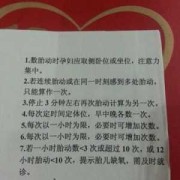 1.数胎动时孕妇应取侧卧位或坐位，注意力
集中。
2.若连续胎动或在同一时刻感到多处胎动，
只能算作一次。
3.停止3分钟左右再次胎动计算为另一次。
4.每次定时间定体位，早中晚各数一次。
5.每次以一小时为限，必要时可增加次数。
6.每次以一小时为限，必要时可增加次数。
7.若一小时胎动数<3次或超过10次，或12
小时胎动<10次，提示胎儿缺氧，需及时就
诊。